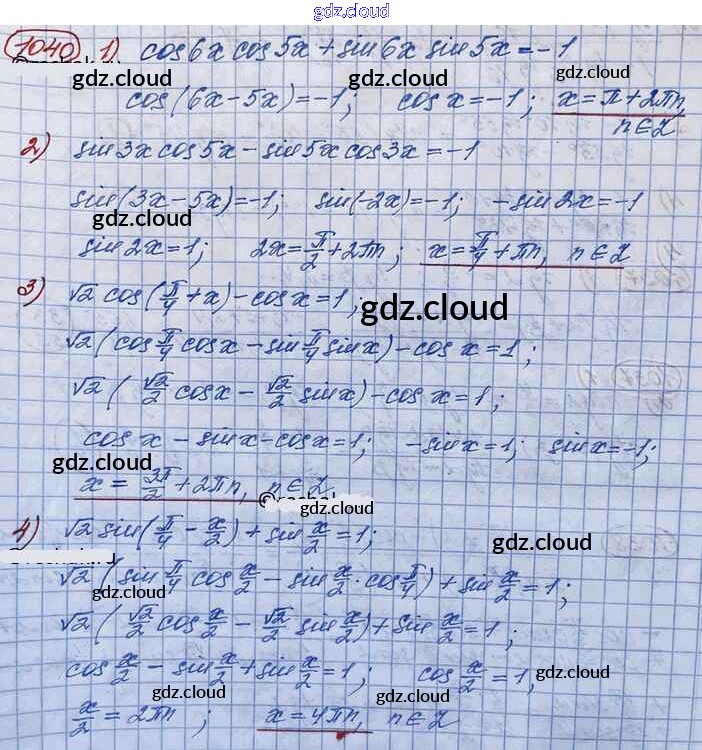 gdz.cloud
1040 1) cos6x cos5x + sin6x sin5x = -1
gdz.cloud gdz.cloud
cos(6x-5x)=-1; cos x=-1; x=π+2πn,
gdz.cloud n∈Z
2) sin3x cos5x - sin5x cos3x = -1
sin(3x-5x)=-1; sin(-2x)=-1; -sin2x=-1
gdz.cloud
sin2x=1; 2x=π/2+2πn; x=π/4+πn, n∈Z
3) √2 cos(π/4+x)-cosx=1;
gdz.cloud
√2(cosπ/4 cosx - sinπ/4 sinx)-cosx=1;
√2(√2/2 cosx - √2/2 sinx)-cosx=1;
cosx-sinx-cosx=1; -sinx=1; sinx=-1;
gdz.cloud gdz.cloud
x=3π/2+2πn, n∈Z
gdz.cloud
4) √2 sin(π/4-x/2)+sin x/2=1;
gdz.cloud
√2(sinπ/4 cos x/2 - sin x/2·cosπ/4)+sin x/2=1;
gdz.cloud
√2(√2/2 cos x/2 - √2/2 sin x/2)+sin x/2=1;
gdz.cloud
cos x/2 - sin x/2 + sin x/2=1; cos x/2=1,
gdz.cloud gdz.cloud
x/2=2πn; x=4πn, n∈Z